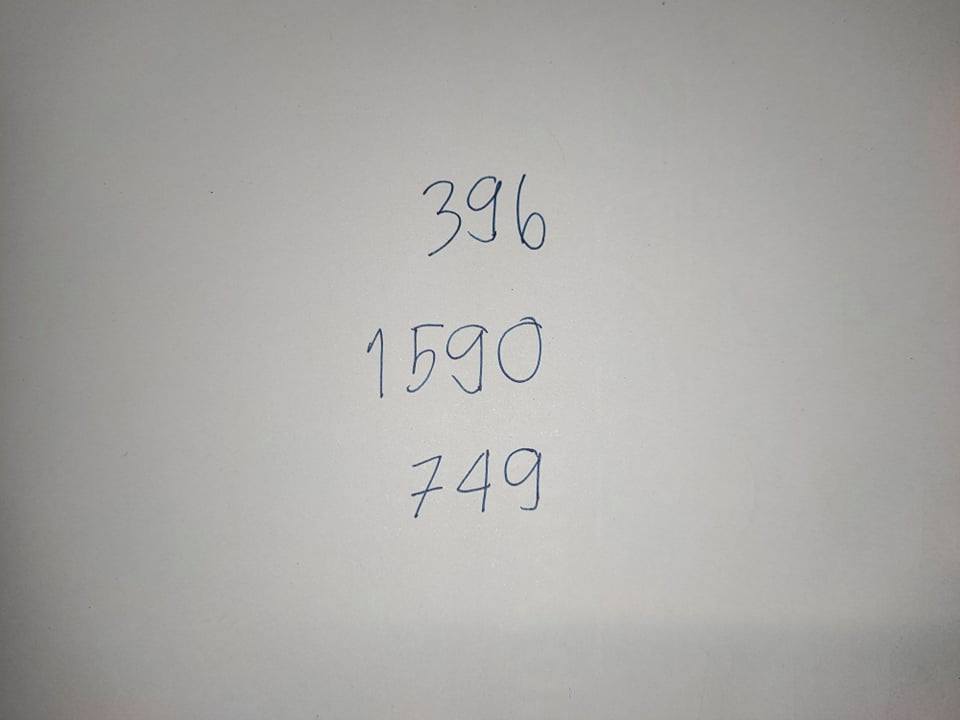 396
1590
749